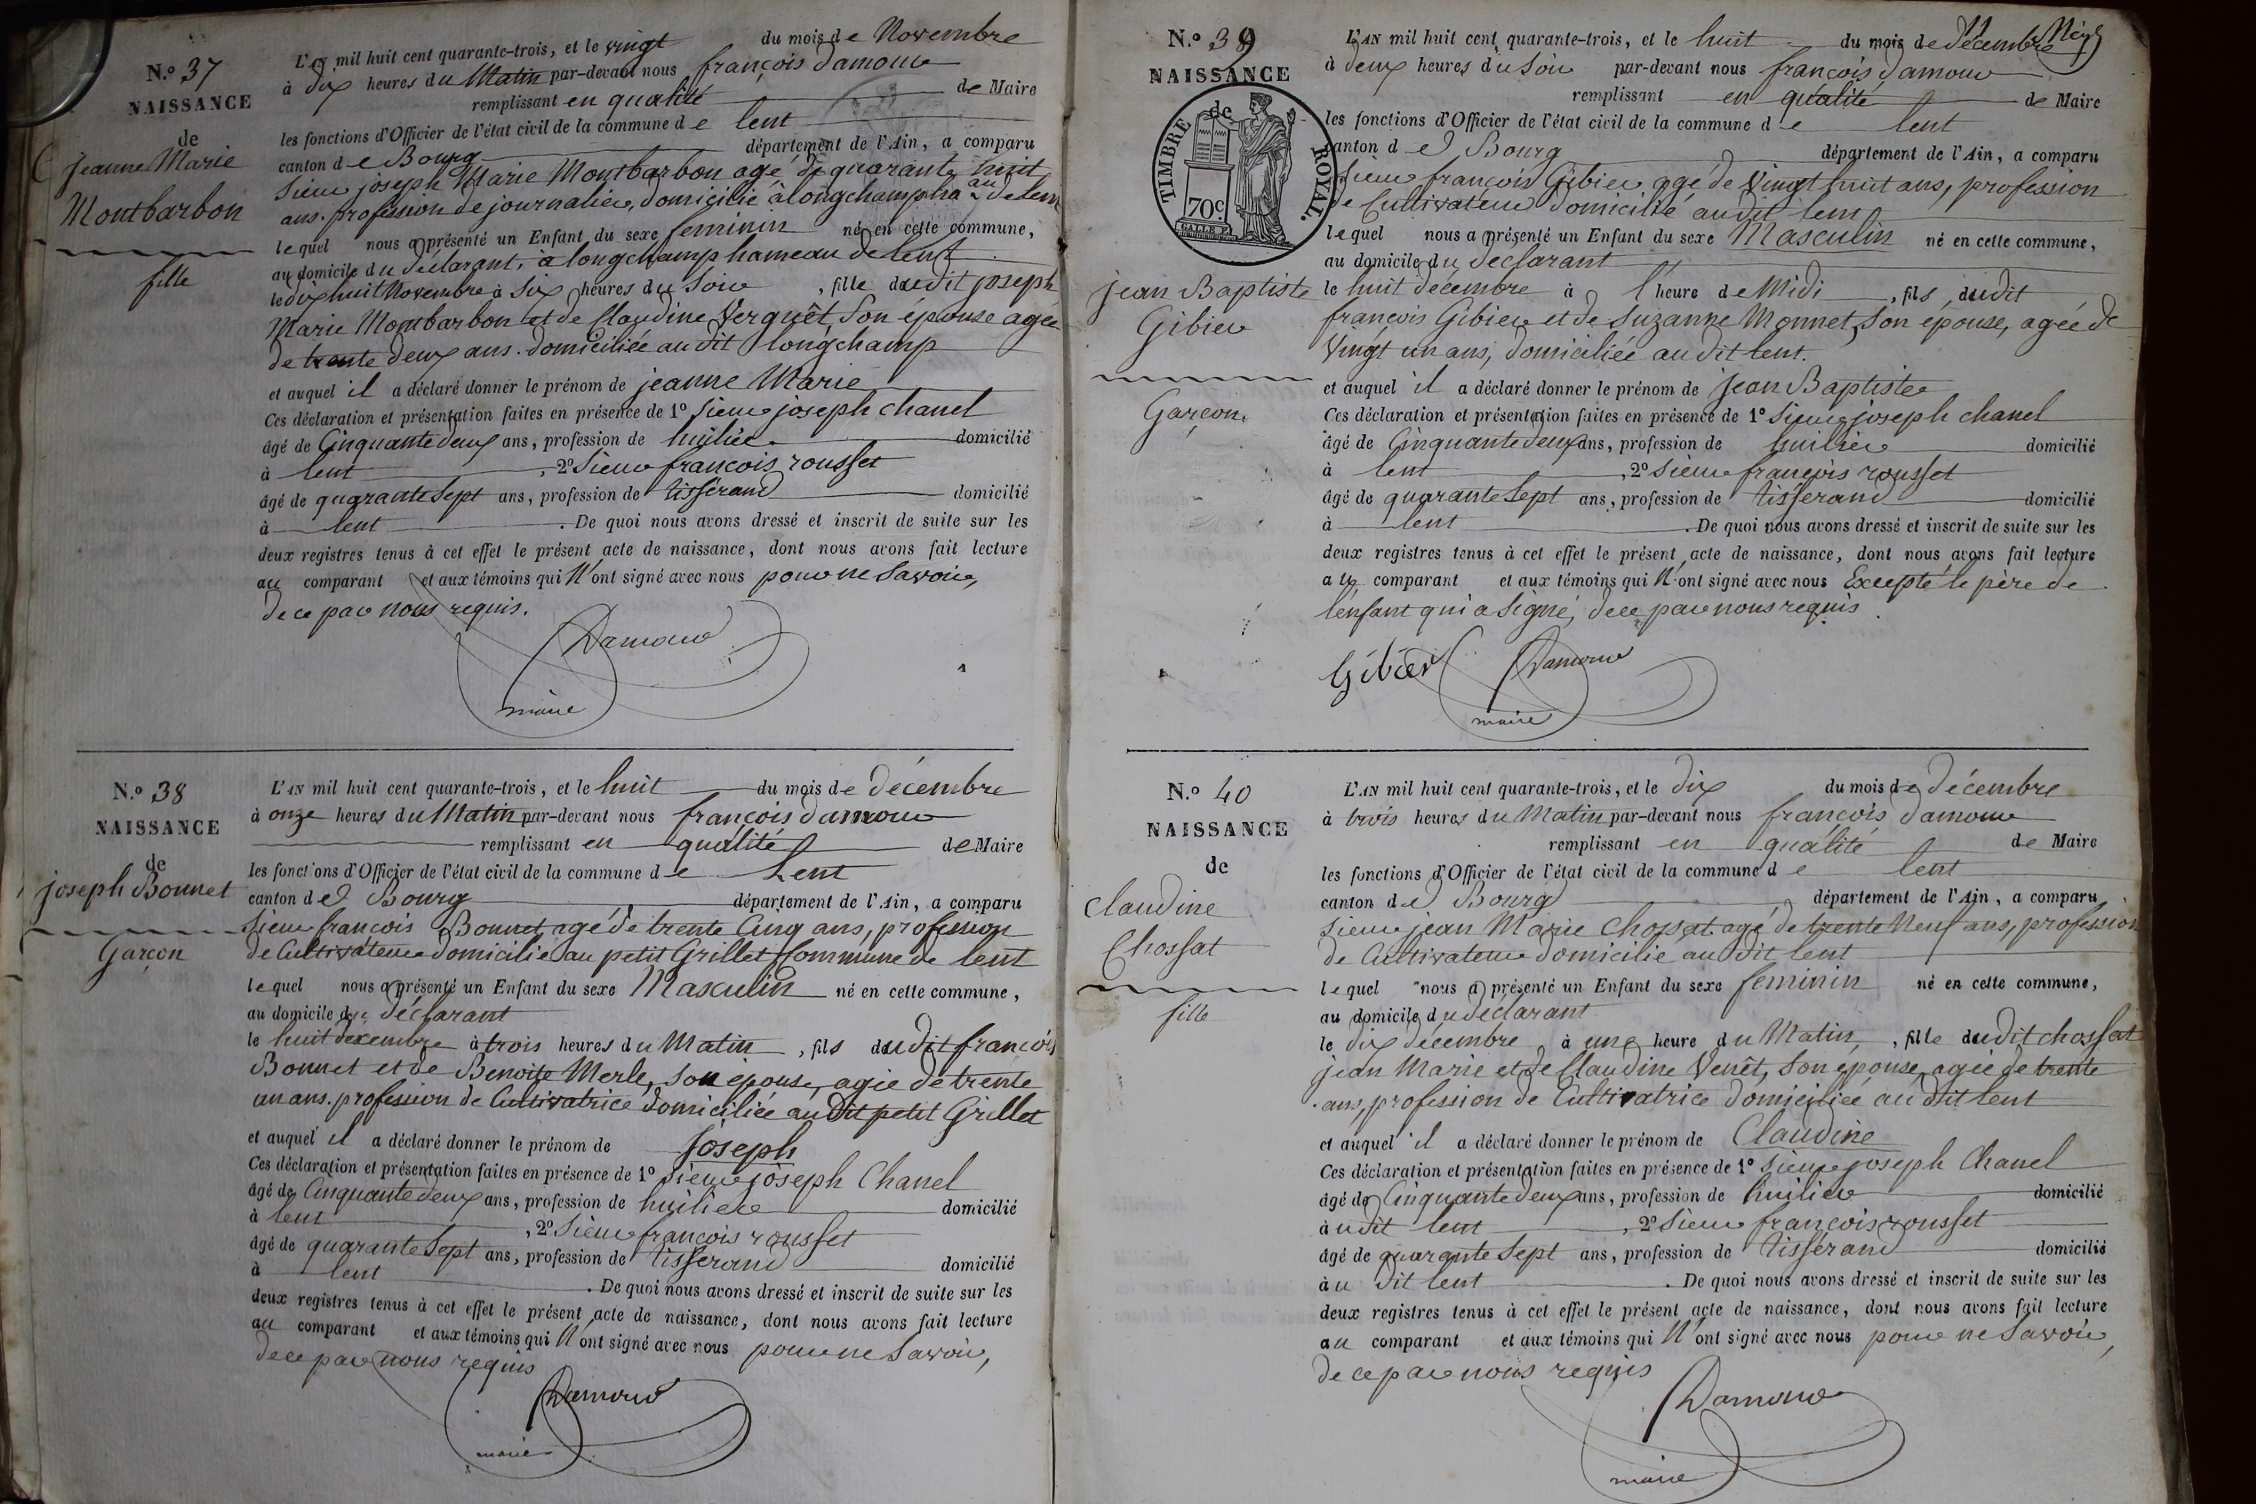 N.º 37
NAISSANCE
de
jeanne Marie
Montbarbon
fille
L'AN mil huit cent quarante-trois, et le vingt du mois de Novembre
à dix heures du Matin par-devant nous françois damour
remplissant en qualité de Maire
les fonctions d'Officier de l'état civil de la commune de lent
canton de Bourg département de l'Ain, a comparu
Sieur joseph Marie Montbarbon agé de quarante huit
ans. profession de journalier, domicilié à longchamp hau de lent
lequel nous a présenté un Enfant du sexe feminin né en cette commune,
au domicile du déclarant, à longchamp hameau de lent
le dix huit Novembre à Six heures du Soir, fille dudit joseph
Marie Montbarbon et de Claudine Verquêt, Son épouse agée
de trente deux ans. domiciliée au dit longchamp
et auquel il a déclaré donner le prénom de jeanne Marie
Ces déclaration et présentation faites en présence de 1º Sieur joseph chanel
âgé de Cinquante deux ans, profession de huilier domicilié
à lent, 2º Sieur françois rousset
âgé de quarante Sept ans, profession de tissérand domicilié
à lent. De quoi nous avons dressé et inscrit de suite sur les
deux registres tenus à cet effet le présent acte de naissance, dont nous avons fait lecture
au comparant et aux témoins qui N'ont signé avec nous pour ne Savoir,
de ce par nous requis.
Damour
maire
N.º 38
NAISSANCE
de
joseph Bonnet
Garçon
L'AN mil huit cent quarante-trois, et le huit du mois de décembre
à onze heures du Matin par-devant nous françois damour
remplissant en qualité de Maire
les fonctions d'Officier de l'état civil de la commune de Lent
canton de Bourg département de l'Ain, a comparu
Sieur françois Bonnet agé de trente Cinq ans, profession
de Cultivateur domicilié au petit Grillet Commune de lent
lequel nous a présenté un Enfant du sexe Masculin né en cette commune,
au domicile du déclarant
le huit décembre à trois heures du Matin, fils dudit françois
Bonnet et de Benoite Merle, Son épouse, agée de trente
un ans. profession de Cultivatrice domiciliée au dit petit Grillet
et auquel il a déclaré donner le prénom de joseph
Ces déclaration et présentation faites en présence de 1º Sieur joseph Chanel
âgé de Cinquante deux ans, profession de huilier domicilié
à lent, 2º Sieur françois rousset
âgé de quarante Sept ans, profession de tisserand domicilié
à lent. De quoi nous avons dressé et inscrit de suite sur les
deux registres tenus à cet effet le présent acte de naissance, dont nous avons fait lecture
au comparant et aux témoins qui N'ont signé avec nous pour ne Savoir,
de ce par nous requis
Damour
maire
N.º 39
NAISSANCE
de
TIMBRE ROYAL.
70c.
jean Baptiste
Gibier
Garçon
L'AN mil huit cent quarante-trois, et le huit du mois de décembre
à deux heures du Soir par-devant nous françois damour
remplissant en qualité de Maire
les fonctions d'Officier de l'état civil de la commune de lent
canton de Bourg département de l'Ain, a comparu
Sieur françois Gibier agé de Vingt huit ans, profession
de Cultivateur domicilié au dit lent
lequel nous a présenté un Enfant du sexe Masculin né en cette commune,
au domicile du déclarant
le huit décembre à l'heure de Midi, fils dudit
françois Gibier et de Suzanne Monnet, Son épouse, agée de
Vingt un ans, domiciliée au dit lent.
et auquel il a déclaré donner le prénom de jean Baptiste
Ces déclaration et présentation faites en présence de 1º Sieur joseph chanel
âgé de Cinquante deux ans, profession de huilier domicilié
à lent, 2º Sieur françois rousset
âgé de quarante Sept ans, profession de tisserand domicilié
à lent. De quoi nous avons dressé et inscrit de suite sur les
deux registres tenus à cet effet le présent acte de naissance, dont nous avons fait lecture
au comparant et aux témoins qui N'ont signé avec nous Excepté le père de
l'enfant qui a Signé, de ce par nous requis
Gibier Damour
maire
N.º 40
NAISSANCE
de
Claudine
Chossat
fille
L'AN mil huit cent quarante-trois, et le dix du mois de décembre
à trois heures du Matin par-devant nous françois damour
remplissant en qualité de Maire
les fonctions d'Officier de l'état civil de la commune de lent
canton de Bourg département de l'Ain, a comparu
Sieur jean Marie Chossat agé de trente Neuf ans, profession
de Cultivateur domicilié au dit lent
lequel nous a présenté un Enfant du sexe feminin né en cette commune,
au domicile du déclarant
le dix décembre à une heure du Matin, fille dudit chossat
jean Marie et de Claudine Venêt, Son épouse, agée de trente
ans, profession de Cultivatrice domiciliée au dit lent
et auquel il a déclaré donner le prénom de Claudine
Ces déclaration et présentation faites en présence de 1º Sieur joseph Chanel
âgé de Cinquante deux ans, profession de huilier domicilié
àu dit lent, 2º Sieur françois rousset
âgé de quarante Sept ans, profession de tissérand domicilié
àu dit lent. De quoi nous avons dressé et inscrit de suite sur les
deux registres tenus à cet effet le présent acte de naissance, dont nous avons fait lecture
au comparant et aux témoins qui N'ont signé avec nous pour ne Savoir,
de ce par nous requis
Damour
maire